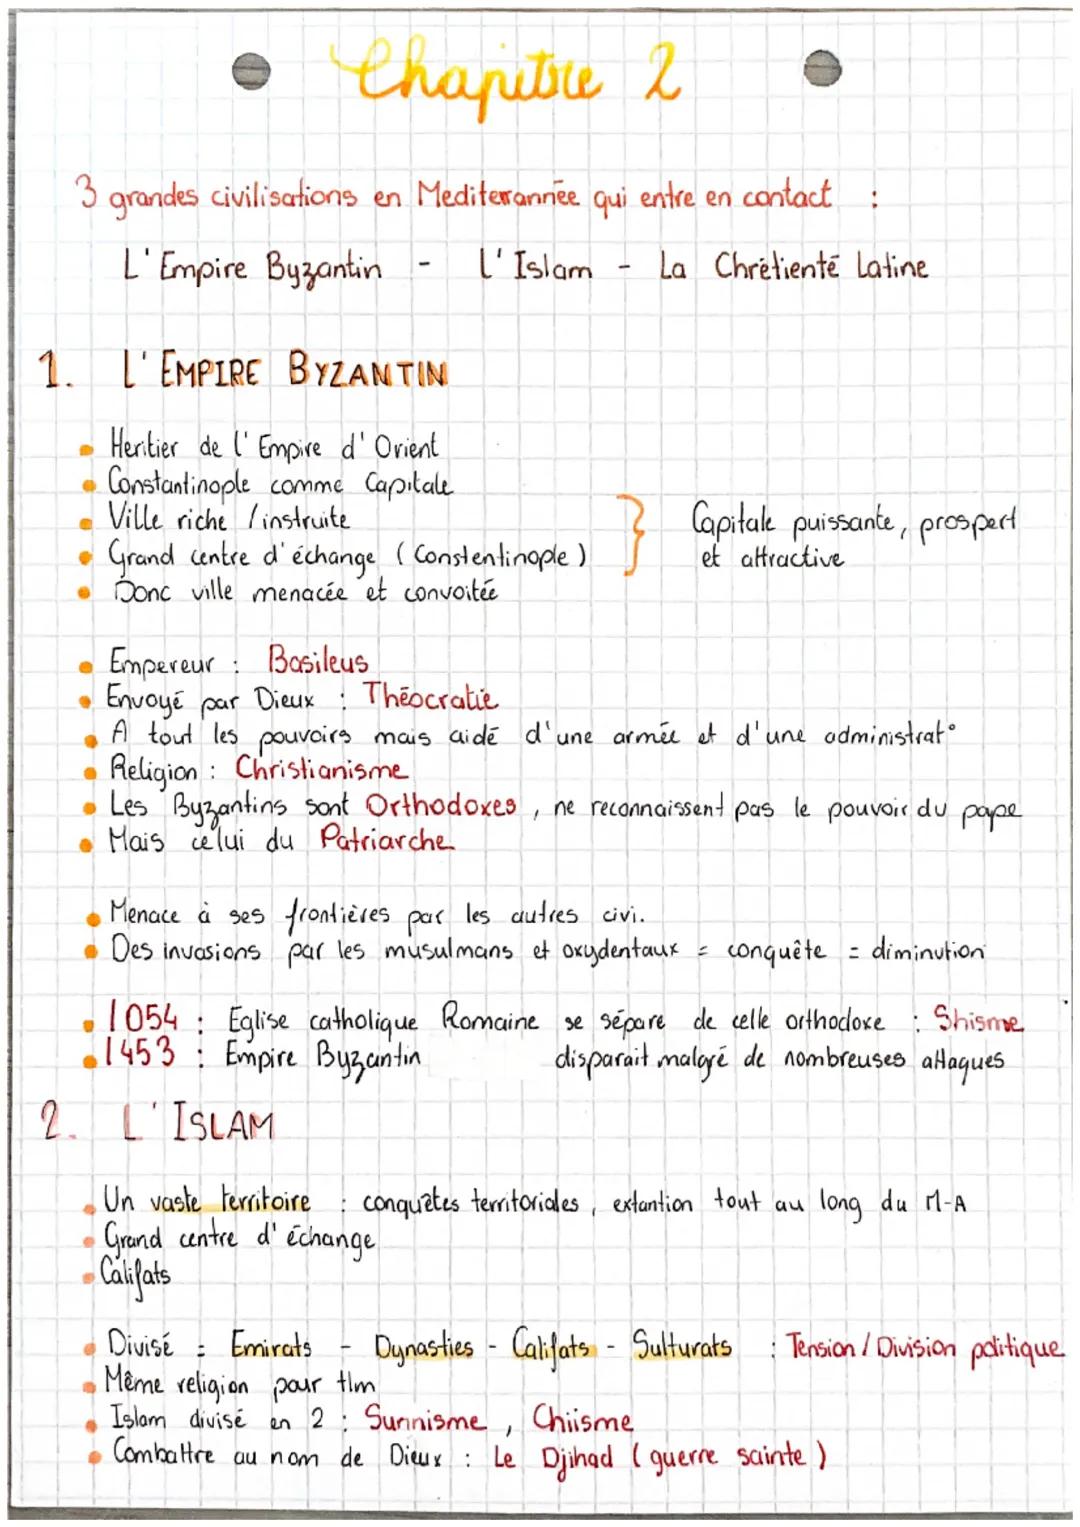 Chapitre 2
3 grandes civilisations en Mediterannée qui entre en contact :
L'Empire Byzantin - L'Islam - La Chrétienté Latine
1. L'EMPIRE BYZANTIN
Heritier de l'Empire d'Orient
Constantinople comme Capitale
Ville riche / instruite
Grand centre d'échange ( Constentinople )
Donc ville menacée et convoitée
} Capitale puissante, prospert
et attractive
Empereur : Basileus
Envoyé par Dieux : Théocratie
A tout les pouvoirs mais aidé d'une armée et d'une administrat°
Religion : Christianisme
Les Byzantins sont Orthodoxes, ne reconnaissent pas le pouvoir du pape
Mais celui du Patriarche
Menace à ses frontières par les autres civi.
Des invasions par les musulmans et oxydentaux = conquête = diminution
1054 : Eglise catholique Romaine se sépare de celle orthodoxe : Shisme
1453 : Empire Byzantin disparait malgré de nombreuses attaques
2. L'ISLAM
Un vaste territoire : conquêtes territoriales, extantion tout au long du M-A
Grand centre d'échange
Califats
Divisé = Emirats - Dynasties - Califats - Sulturats : Tension / Division politique
Même religion pour tlm
Islam divisé en 2 : Sunnisme, Chiisme
Combattre au nom de Dieux : Le Djihad ( guerre sainte )